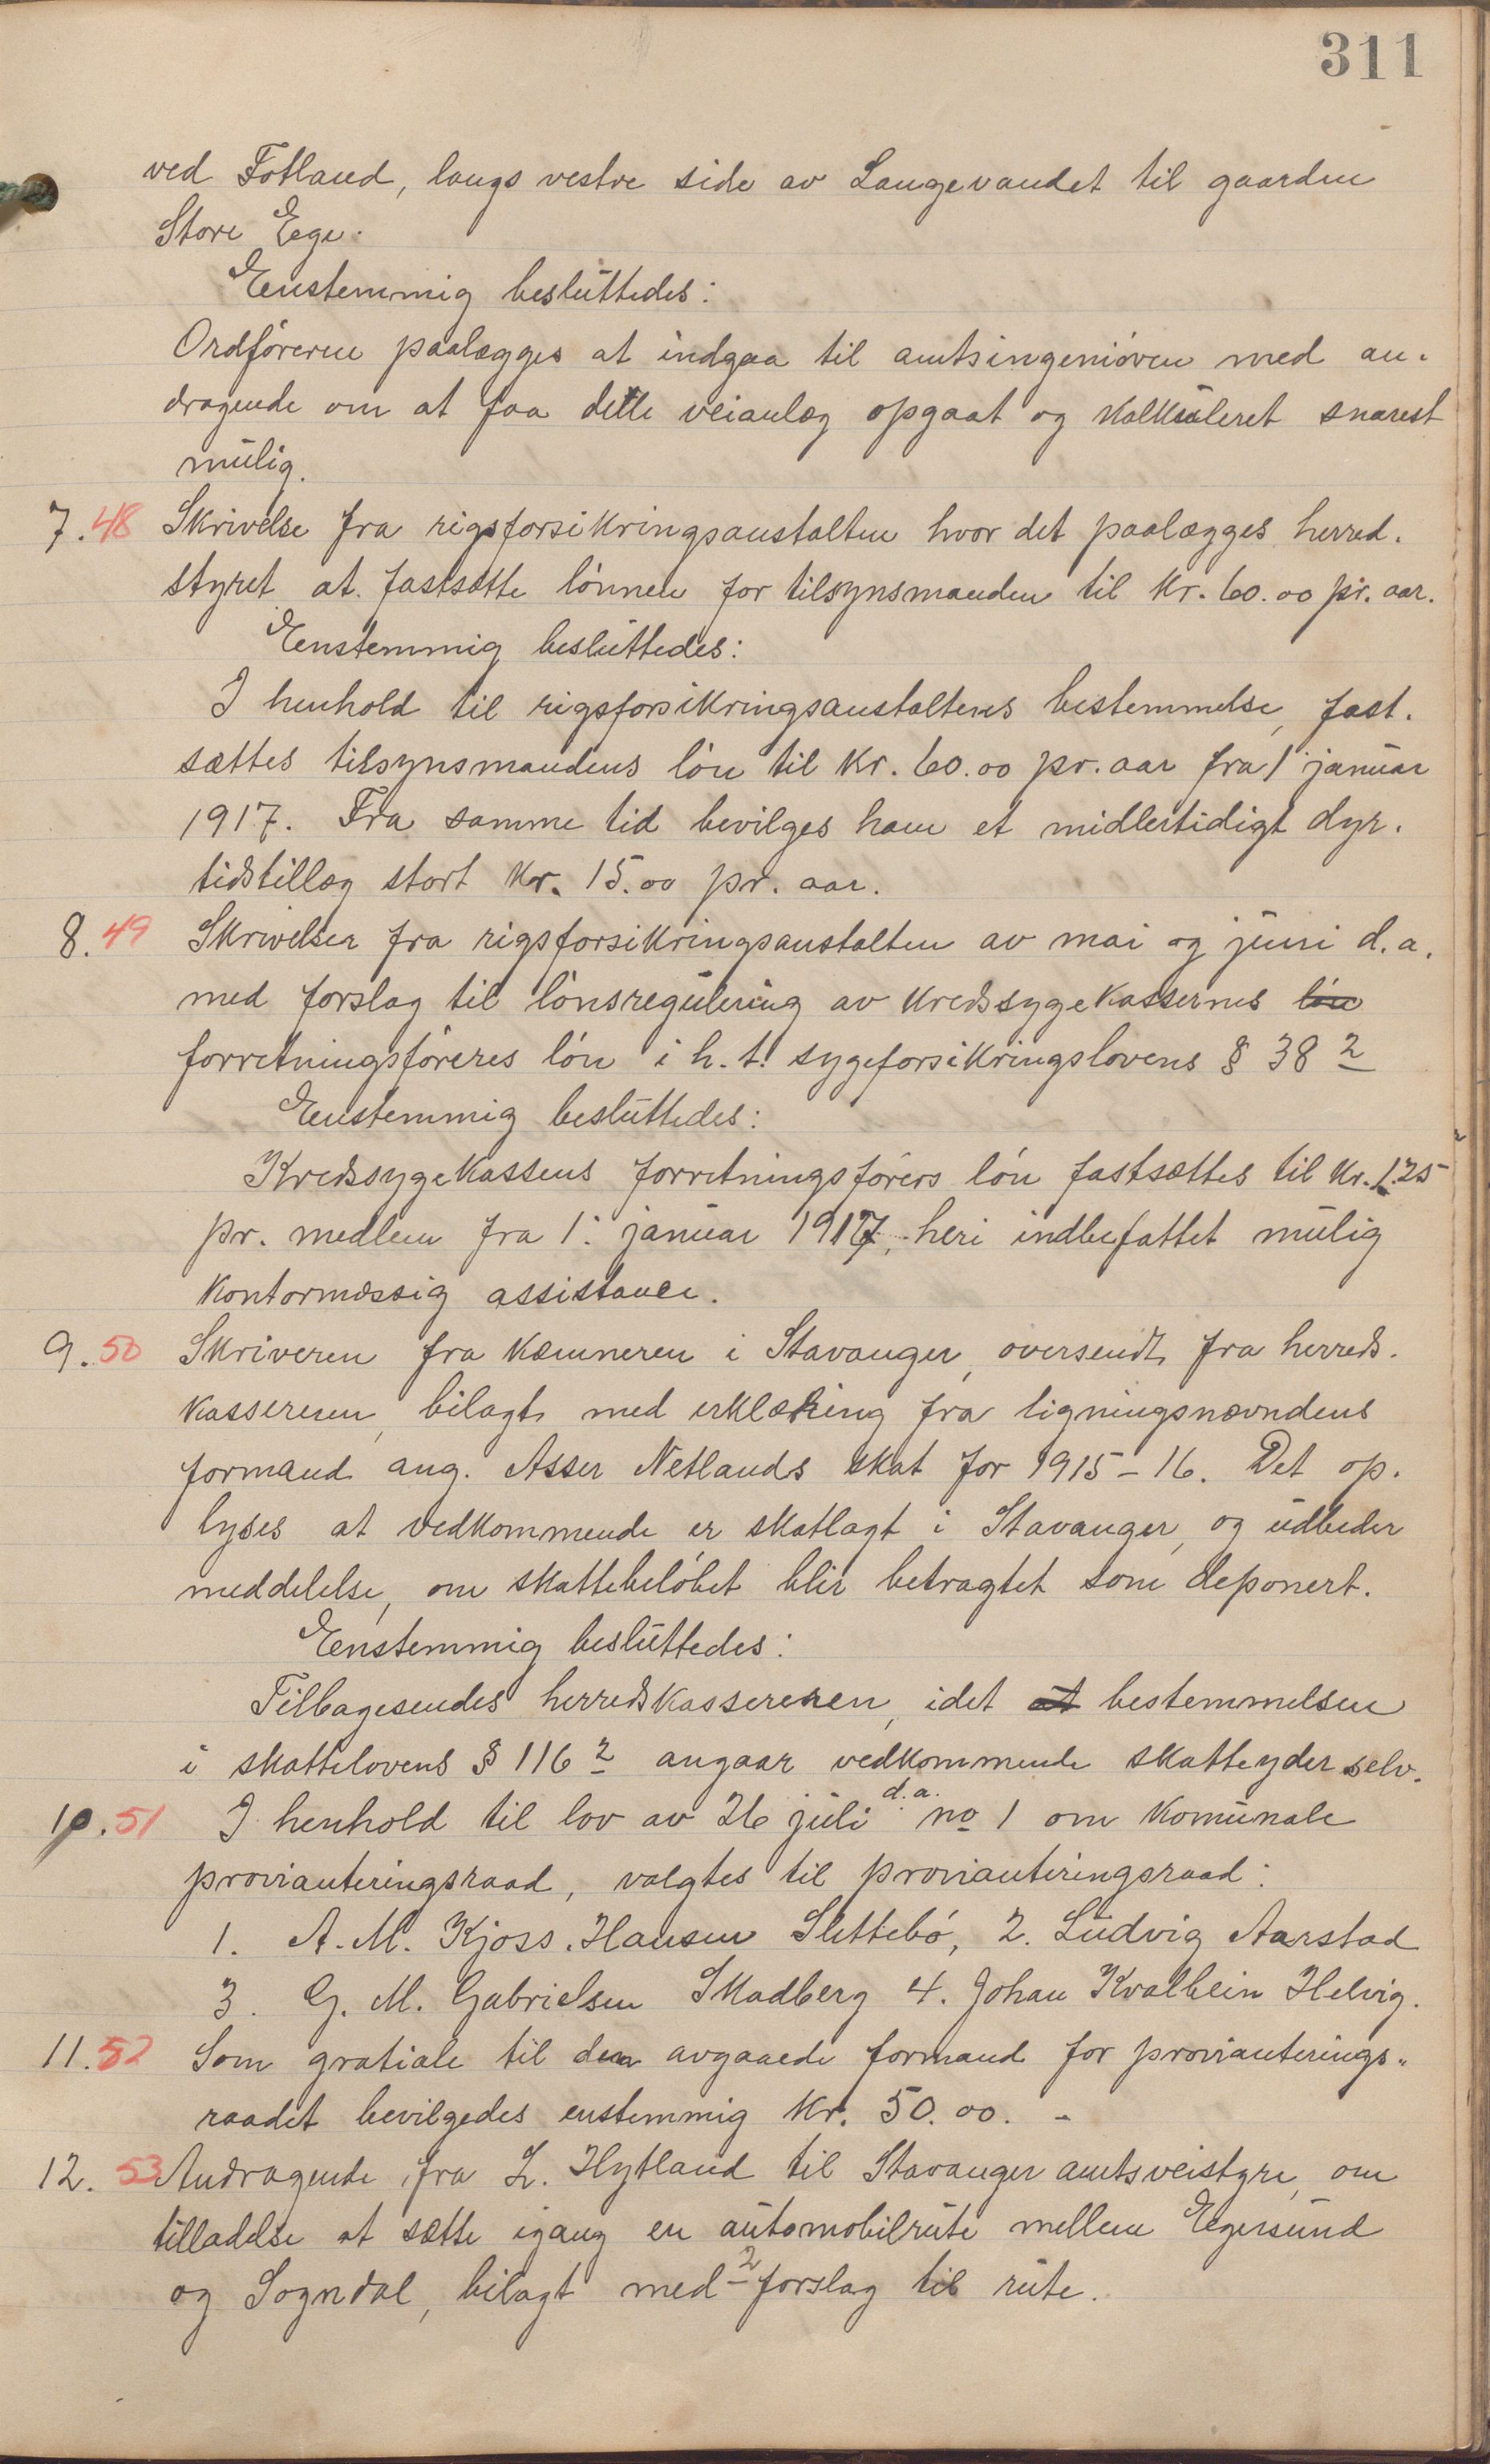 311
ved Fotland, langs vestre side av Langevandet til gaarden
Store Eege.
Eenstemmig besluttedes:
Ordføreren paalægges at indgaa til amtsingeniøren med an-
dragende om at faa dette veianlæg opgaat og kalkuleret snarest
mulig.
7. 48 Skrivelse fra rigsforsikringsanstalten hvor det paalægges herred-
styret at fastsætte lønnen for tilsynsmanden til kr. 60.00 pr. aar.
Eenstemmig besluttedes:
I henhold til rigsforsikringsanstaltens bestemmelse, fast-
sættes tilsynsmandens løn til kr. 60.00 pr. aar fra 1 januar
1917. Fra samme tid bevilges ham et midlertidigt dyr-
tidstillæg stort kr. 15.00 pr. aar.
8. 49 Skrivelser fra rigsforsikringsanstalten av mai og juni d.a.
med forslag til lønsregulering av kredssygekassernes løn
forretningsføreres løn i h.t. sygeforsikringslovens § 38 2
Eenstemmig besluttedes:
Kredssygekassens forretningsførers løn fastsættes til kr. 1.25
pr. medlem fra 1. januar 1917, heri indbefattet mulig
kontormæssig assistance.
9. 50 Skriveren fra kæmneren i Stavanger, oversendt fra herreds-
kassereren, bilagt med erklæring fra ligningsnævndens
formand ang. Asser Netlands skat for 1915-16. Det op-
lyses at vedkommende er skatlagt i Stavanger, og udbeder
meddelelse, om skattebeløbet blir betragtet som deponert.
Eenstemmig besluttedes:
Tilbagesendes herredskassereren, idet at bestemmelsen
i skattelovens § 116 2 angaar vedkommende skatteyder selv.
10. 51 I henhold til lov av 26 juli d.a. no 1 om komunale
provianteringsraad, valgtes til provianteringsraad:
1. A. M. Kjoss. Hansen Slettebø, 2. Ludvig Aarstad
3. G. M. Gabrielsen Skadberg 4. Johan Kvalbein Helvig.
11. 52 Som gratiale til den avgaaede formand for provianterings-
raadet bevilgedes enstemmig kr. 50.00. -
12. 53 Andragende fra L. Hytland til Stavanger amtsveistyre, om
tilladelse at sætte igang en automobilrute mellem Egersund
og Sogndal, bilagt med 2 forslag til rute.